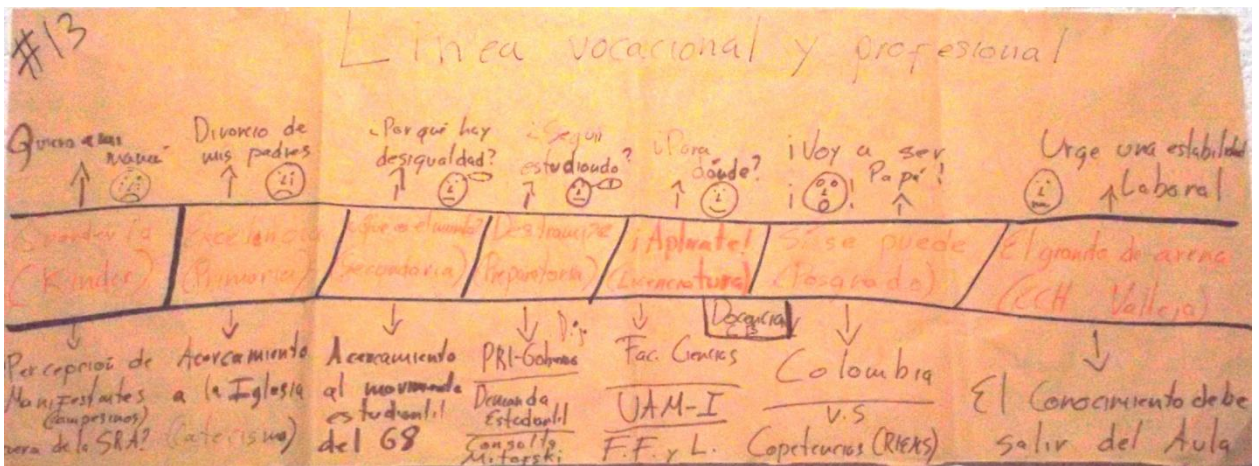 #13
Línea vocacional y profesional
Quiero a mi
mamá
Divorcio de
mis padres
¿Por qué hay
desigualdad?
¿Seguir
estudiando?
¿Para
dónde?
¡Voy a ser
Papá!
Urge una estabilidad
Laboral
(Kinder)
Excelencia
(Primaria)
¿Que es el mundo?
(Secundaria)
(Preparatoria)
¡Aplícate!
(Licenciatura)
Sí se puede
(Posgrado)
El granito de arena
(CCH Vallejo)
Percepción de
Manifestantes
(Campesinos)
de la SRA?
Acercamiento
a la Iglesia
(Catecismo)
Acercamiento
al movimiento
estudiantil
del 68
PRI-Gobierno
Demanda
Estudantil
Consulta
Mitofski
Fac. Ciencias
UAM-I
F.F. y L.
Docencia
Colombia
V.S
Copetencias (RIEMS)
El Conocimiento debe
salir del Aula